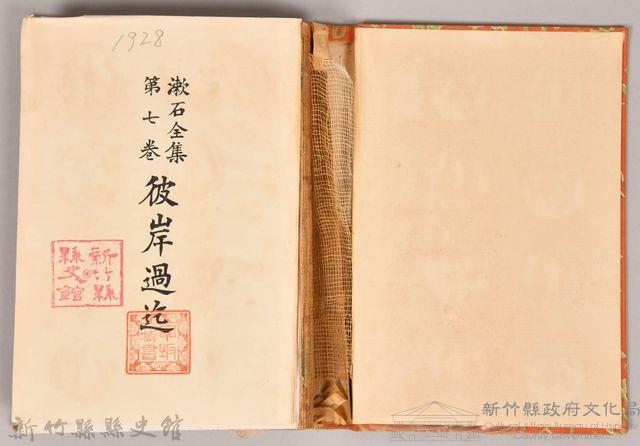 1928
漱石全集
第七卷
彼岸過迄
新竹縣
縣史館
新竹縣縣史館
新竹縣政府文化局
Cultural Affairs Bureau of Hsinchu
County Government